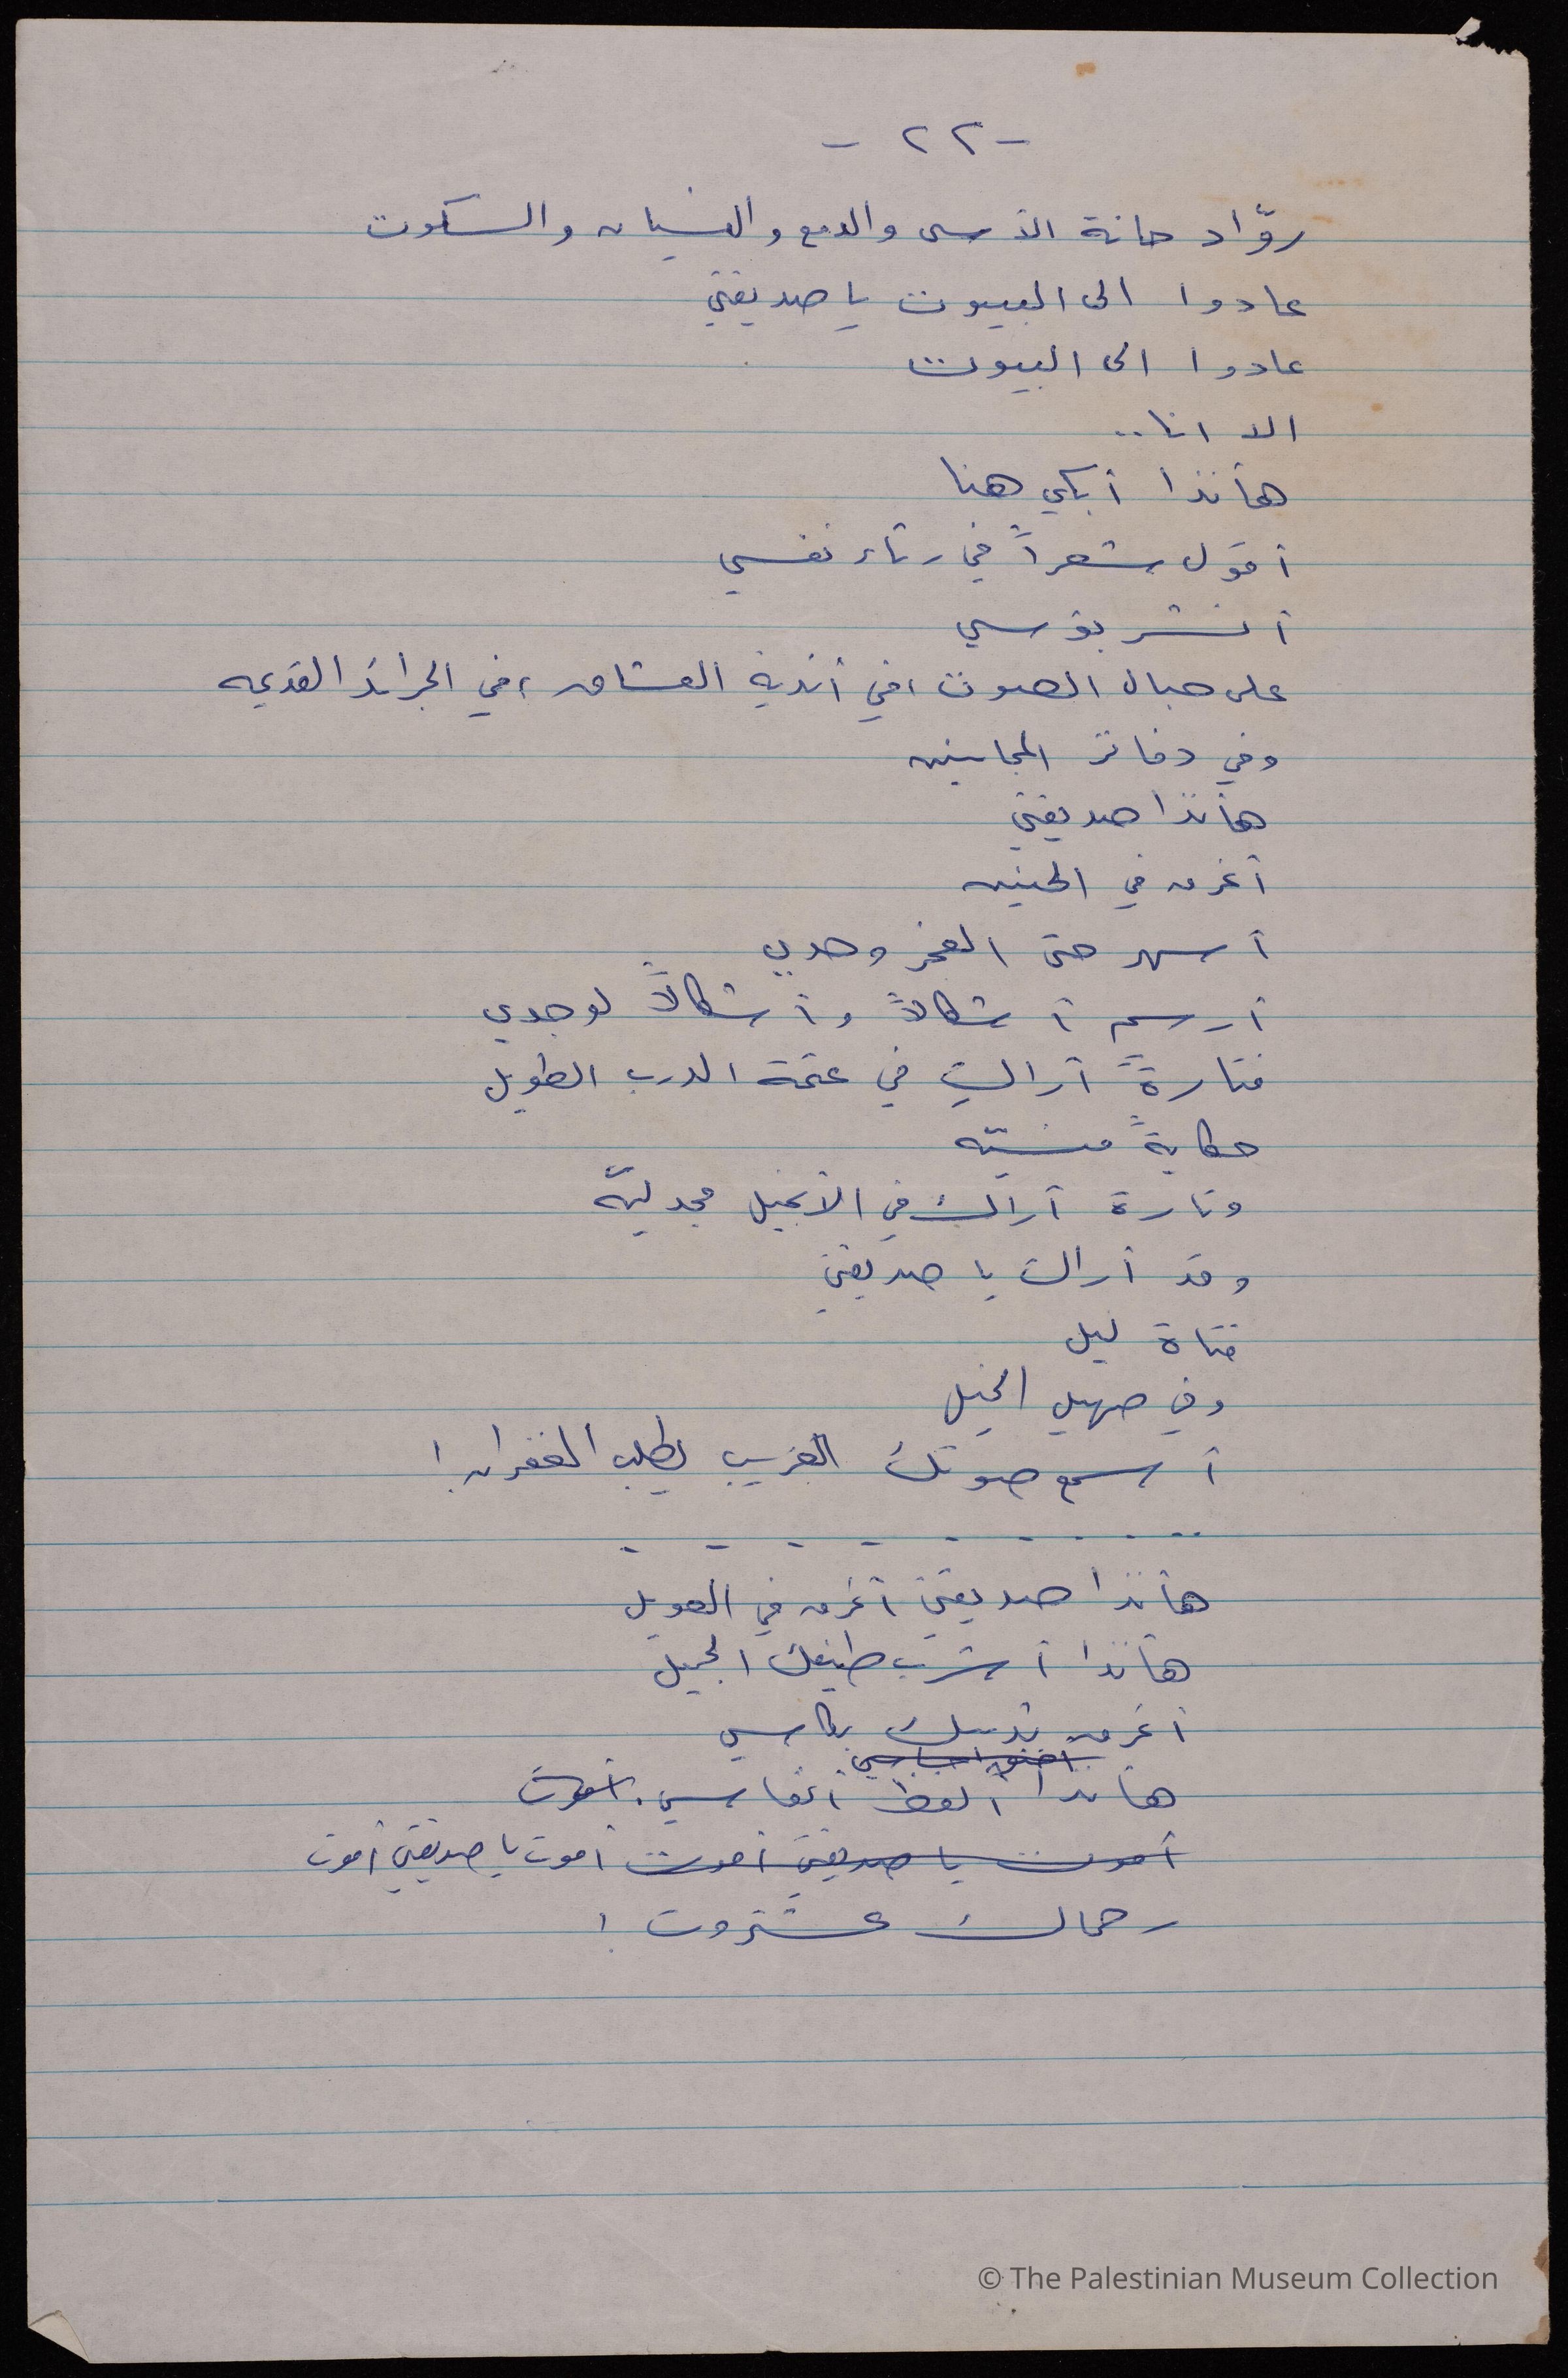 - ٢٢ -
روّاد حانة الأسى والدمع والنسيان والسكوت
عادوا الى البيوت يا صديقتي
عادوا الى البيوت
الا انا..
هأنذا أبكي هنا
أقول شعراً في رثاء نفسي
أنشر بؤسي
على حبال الصوت، في أندية العشاق، في الجرائد القديمه
وفي دفاتر المجانين
هأنذا صديقتي
أغرق في الحنين
أسهر حتى الفجر وحدي
أرسم أشكالاً وأشكالاً لوجدي
فتارةً أراكِ في عتمة الدرب الطويل
حكايةً منسيّه
وتارة أراك في الأنجيل مجدليّه
وقد أراك يا صديقتي
فتاة ليل
وفي صهيل الخيل
أسمع صوتك الغريب يطلب الغفران!
. . . . . . . . . .
هأنذا صديقتي أغرق في العويل
هأنذا أشرب طيفك الجميل
أغرق ثدييك بكاسي
هأنذا ألفظ أنفاسي. أموت
أموت يا صديقتي أموت أموت يا صديقتي أموت
رحماك عشتروت!
© The Palestinian Museum Collection